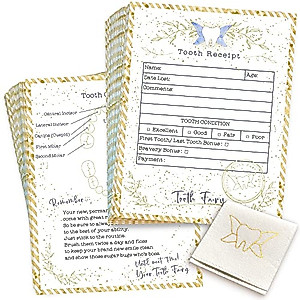 Tooth Receipt
Name:
Age:
Date Lost:
Comments:
TOOTH CONDITION
Excellent Good Fair Poor
First Tooth/ Last Tooth Bonus:
Bravery Bonus:
Payment:
Tooth Fairy
Tooth
Central Incisor
Lateral Incisor
Canine (Cuspid)
First Molar
Second Molar
Remember -
Your new, perman
come with great r
So be sure to alway
to the best of your ability.
Just stick to the routine,
Brush them twice a day and floss
to keep your mouth nice and clean
and show those sugar bugs who's boss!
Until next time!
Your Tooth Fairy